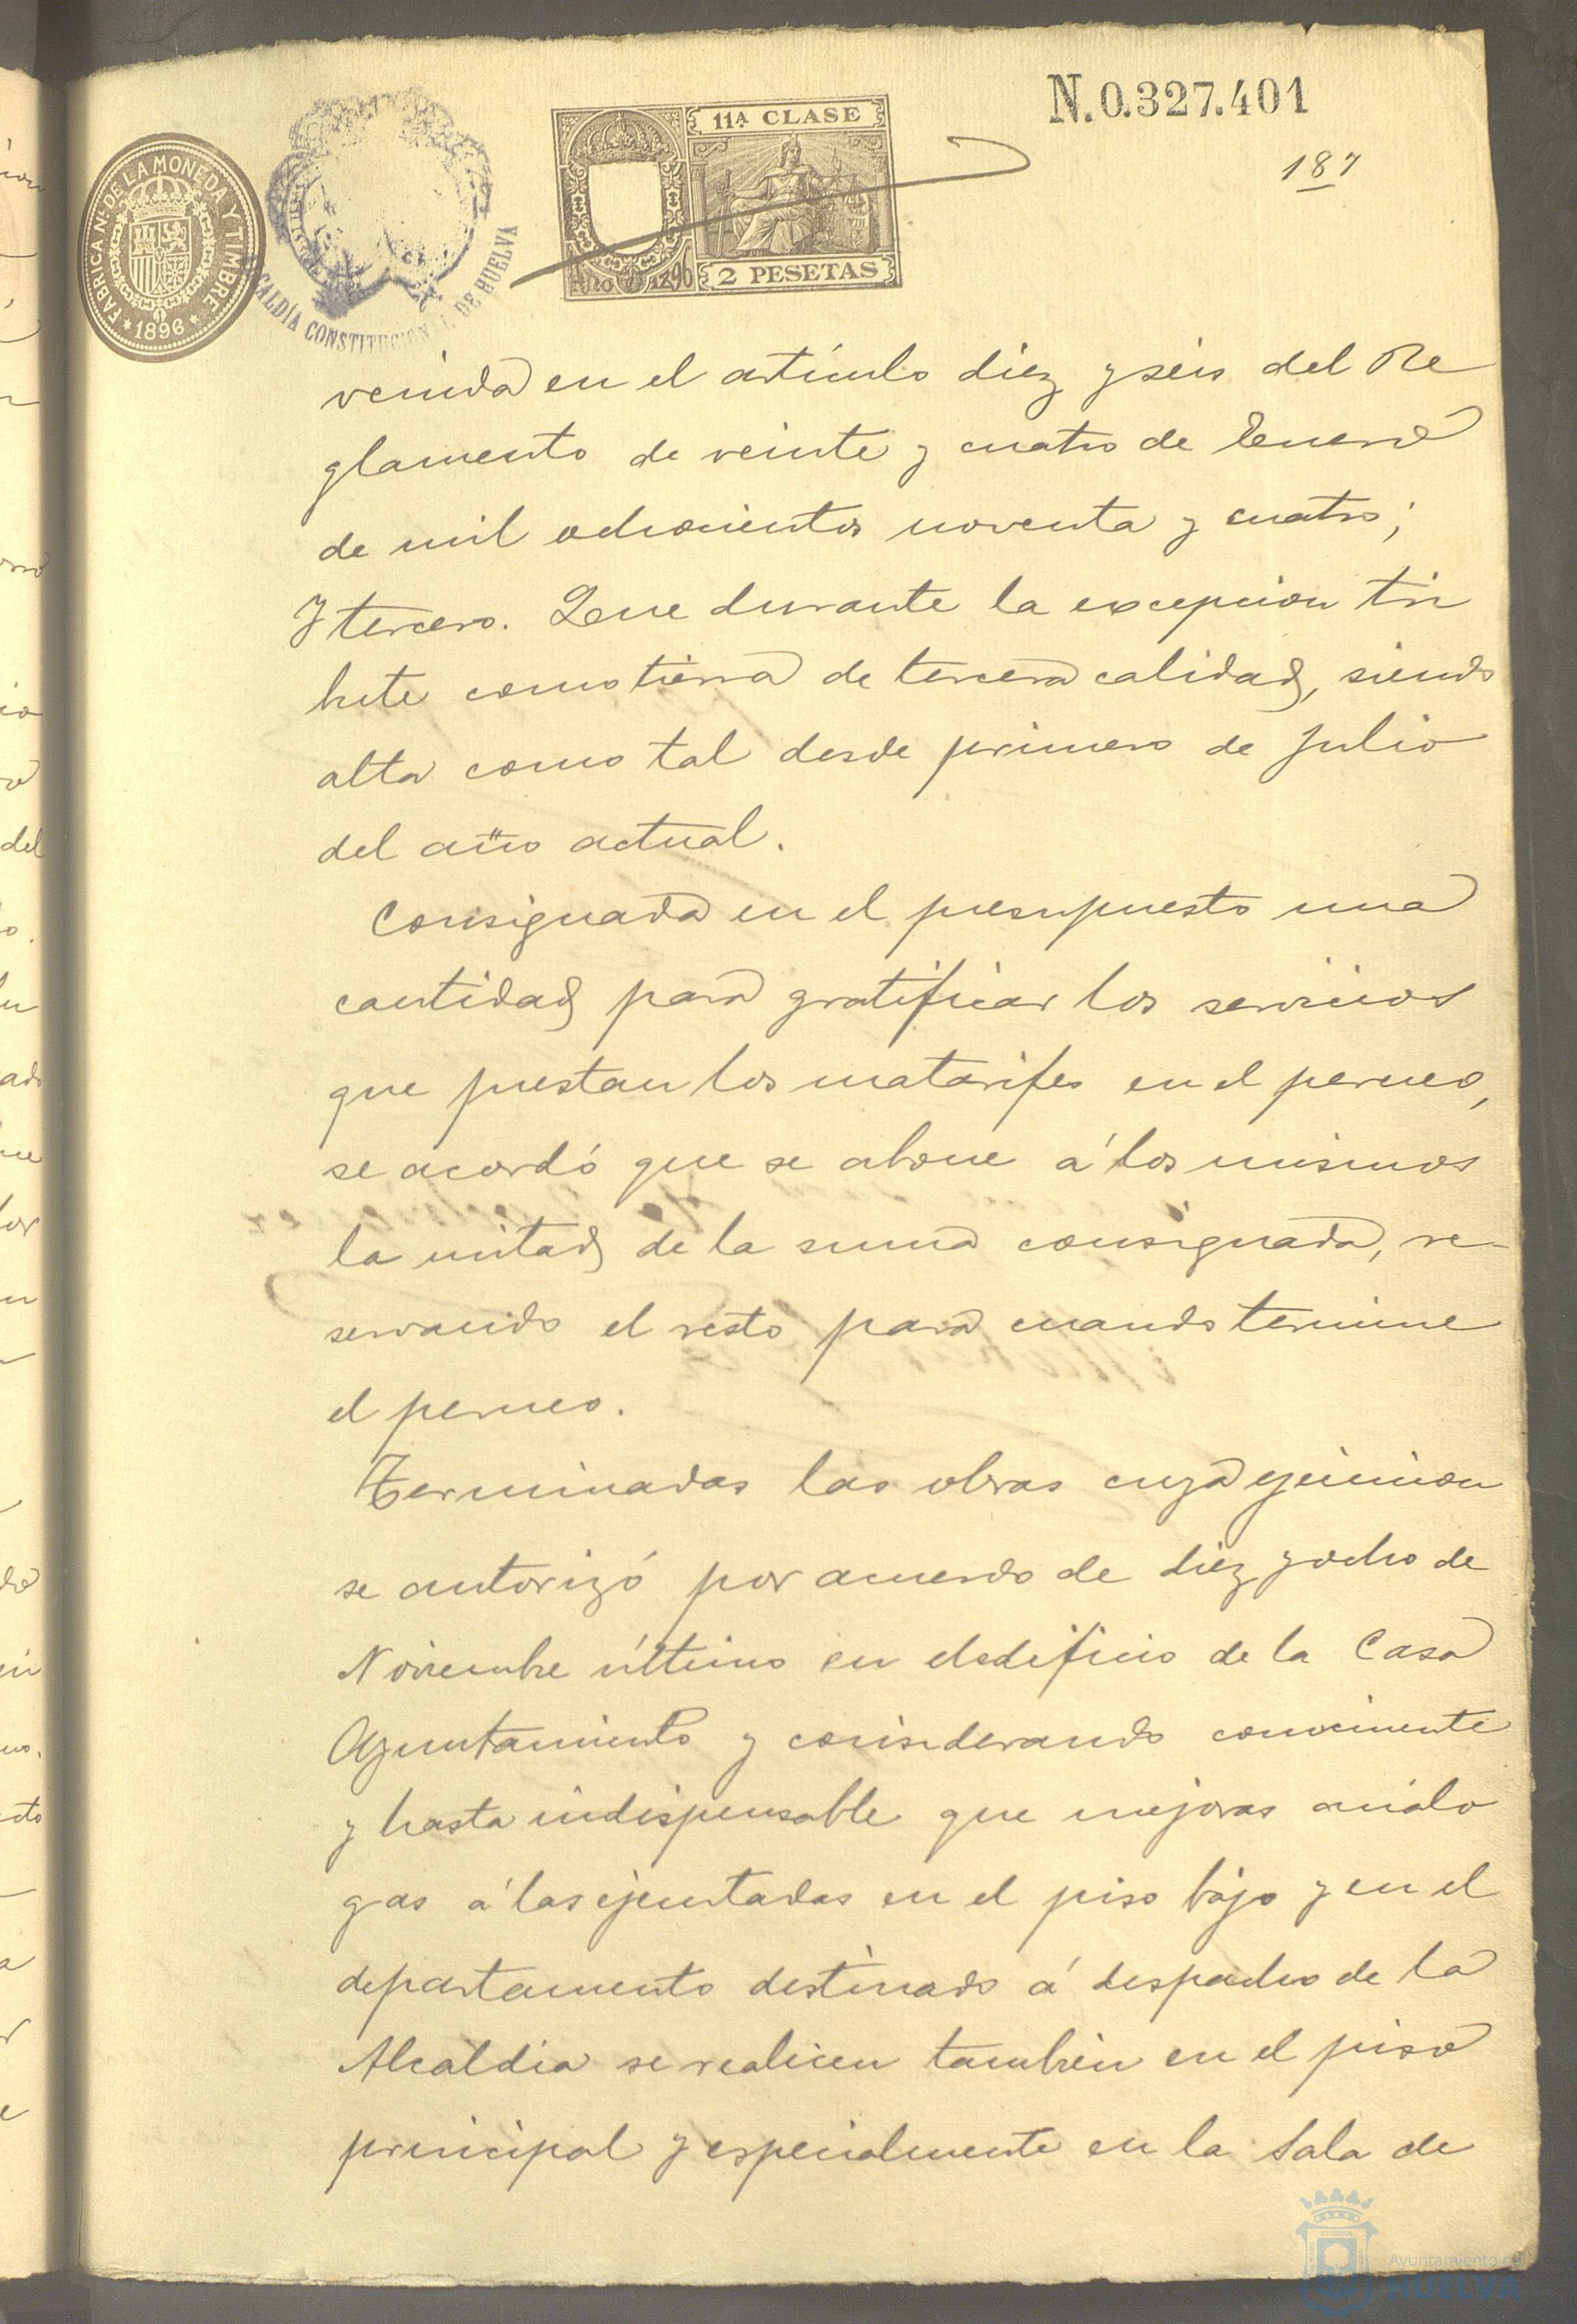 N.0.327.401
187
11ª CLASE
2 PESETAS
FABRICA Nˡ DE LA MONEDA Y TIMBRE
* 1896 *
ALCALDÍA CONSTITUCIONAL DE HUELVA
venida en el artículo diez y seis del Re
glamento de veinte y cuatro de Enero
de mil ochocientos noventa y cuatro;
Y tercero. Que durante la excepcion tri
bute como tierra de tercera calidad, siendo
alta como tal desde primero de Julio
del año actual.
Consignada en el presupuesto una
cantidad para gratificar los servicios
que prestan los matarifes en el perneo,
se acordó que se abone á los mismos
la mitad de la suma consignada, re-
servando el resto para cuando termine
el perneo.
Terminadas las obras cuya ejecucion
se autorizó por acuerdo de diez y ocho de
Noviembre último en el edificio de la Casa
Ayuntamiento y considerando conveniente
y hasta indispensable que mejoras análo
gas á las ejecutadas en el piso bajo y en el
departamento destinado á despacho de la
Alcaldia se realicen tambien en el piso
principal y especialmente en la Sala de
Ayuntamiento de
HUELVA